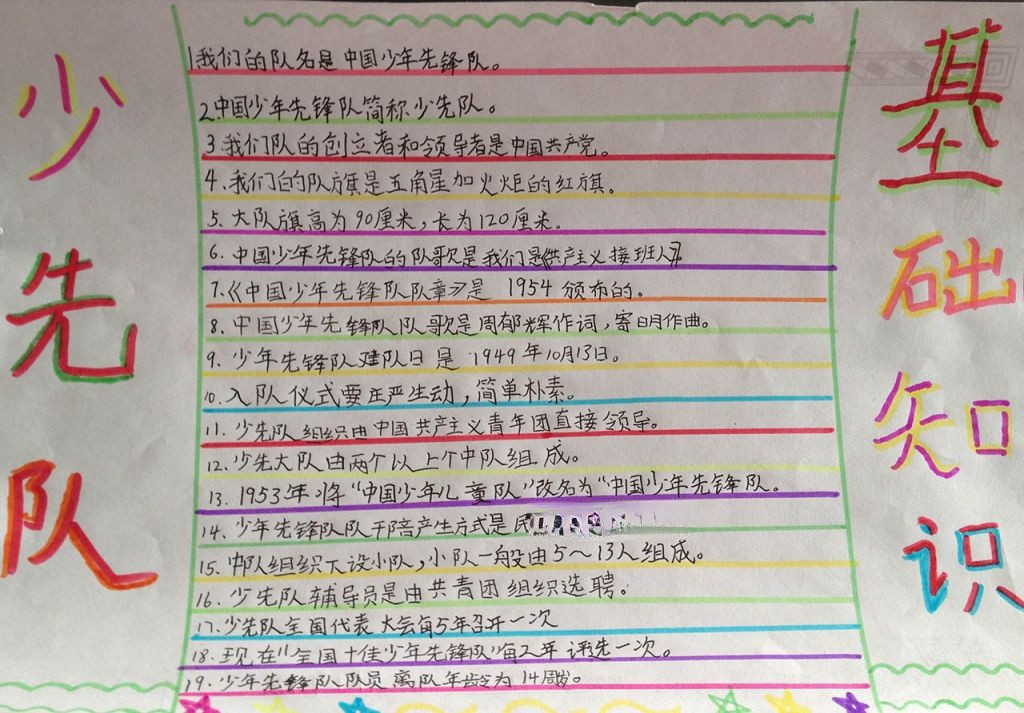 少先队
基础知识
1.我们的队名是中国少年先锋队。
2.中国少年先锋队简称少先队。
3.我们队的创立者和领导者是中国共产党。
4.我们的队旗是五角星加火炬的红旗。
5.大队旗高为90厘米,长为120厘米。
6.中国少年先锋队的队歌是我们是《共产主义接班人》
7.《中国少年先锋队队章》是 1954 颁布的。
8.中国少年先锋队队歌是周郁辉作词,寄明作曲。
9.少年先锋队建队日是 1949年10月13日。
10.入队仪式要庄严生动,简单朴素。
11.少先队组织由中国共产主义青年团直接领导。
12.少先大队由两个以上个中队组成。
13.1953年将“中国少年儿童队”改名为“中国少年先锋队。
14.少年先锋队队干部产生方式是民
15.中队组织下设小队,小队一般由5~13人组成。
16.少先队辅导员是由共青团组织选聘。
17.少先队全国代表大会每5年召开一次
18.现在“全国十佳少年先锋队”每2年评选一次。
19.少年先锋队队员离队年龄为14周岁。